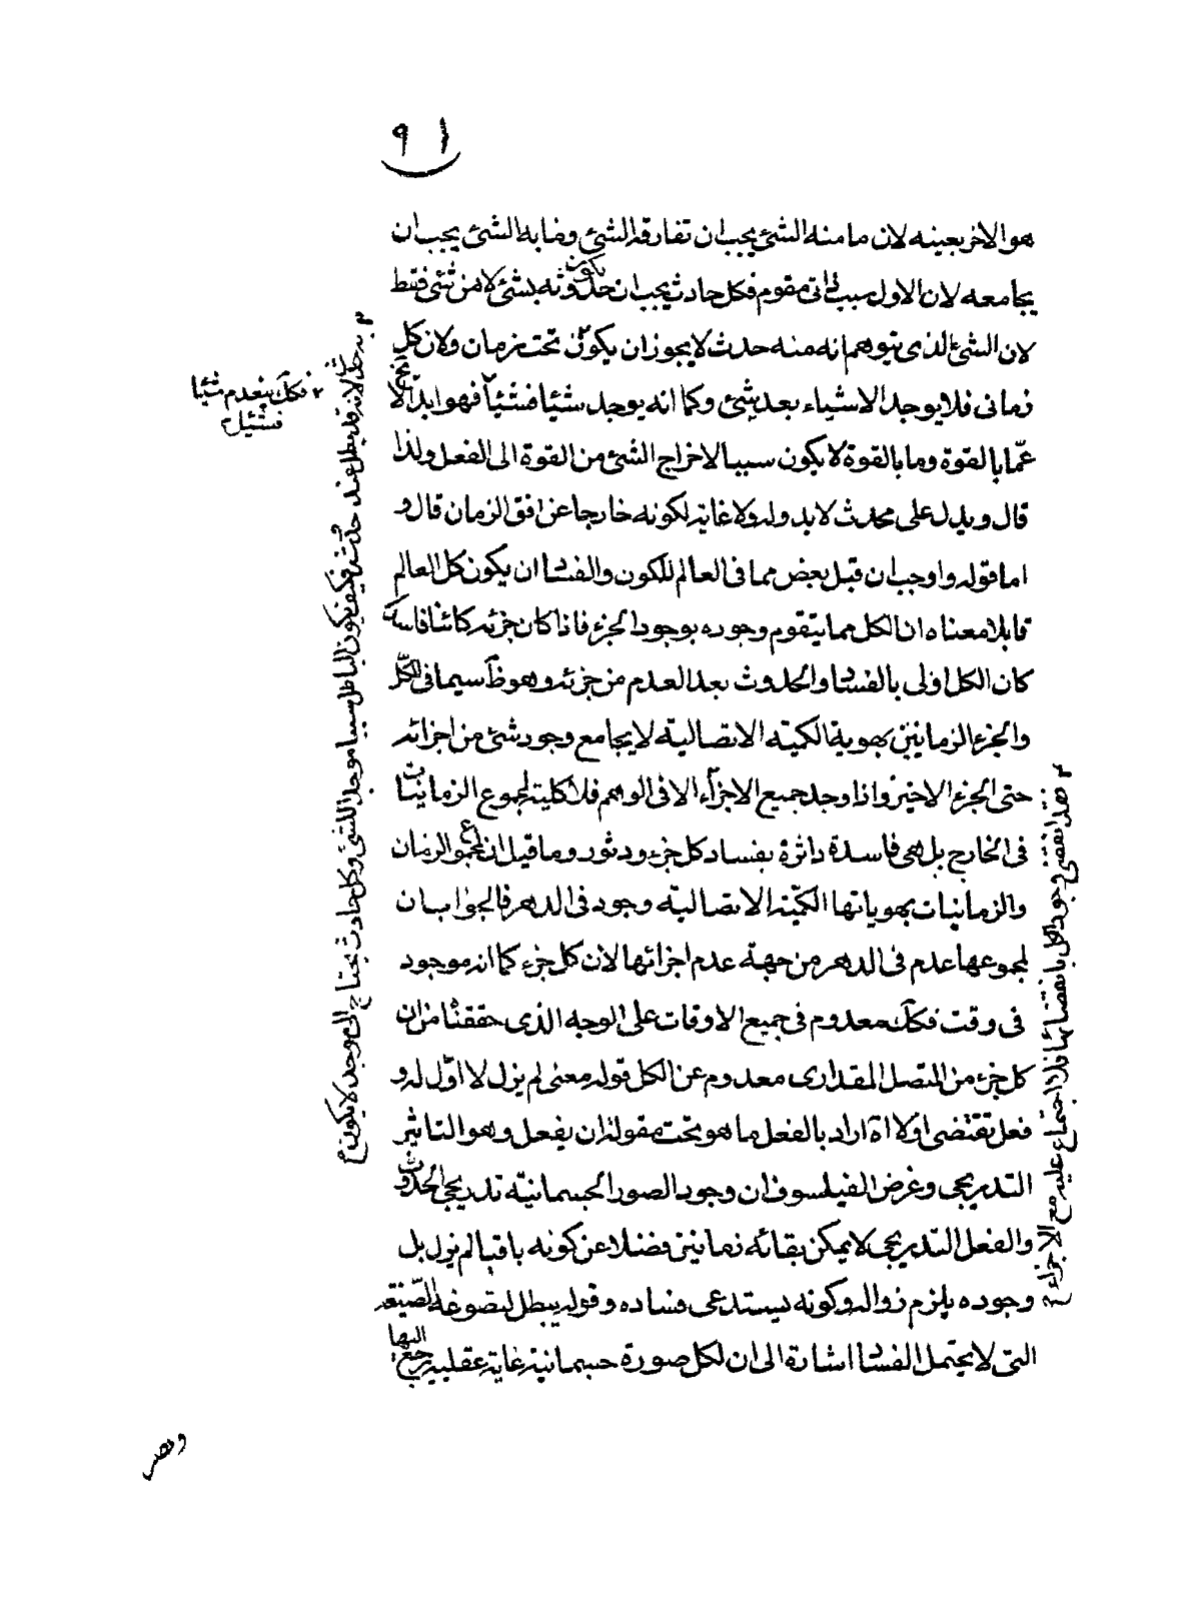 ٩١
هو الاخر بعينه لان ما منه الشئ يجب ان تفارقه الشئ وما به الشئ يجب ان
يجامعه لان الاول سبب ذاتى مقوم فكل حادث يجب ان يكون حدوثه بشئ لا من شئ فقط
لان الشئ الذى يتوهم انه منه حدث لا يجوز ان يكون تحت زمان ولان كل
زمانى فلا يوجد الاشياء بعد شئ وكما انه يوجد شيئا فشيئا فهو ابدا لا يخ
عما بالقوة وما بالقوة لا يكون سببا لاخراج الشئ من القوة الى الفعل ولذا
قال ويدل على محدث لا بدو له ولا غاية لكونه خارجا عن افق الزمان قال و
اما قوله واوجب ان قبل بعض مما فى العالم للكون والفساد ان يكون كل العالم
قابلا معناه ان الكل مما يتقوم وجوده بوجود الجزء فاذا كان جزئه كائنا فاسدا
كان الكل اولى بالفساد والحدوث بعد العدم من جزئه وهو ظ سيما فى الكل
والجزء الزمانيين بهوية الكمية الاتصالية لا يجامع وجود شئ من اجزائه
حتى الجزء الاخير واذا وجد جميع الاجزاء الا فى الوهم فلا كلية لمجموع الزمانيات
فى الخارج بل هى فاسدة داثرة بفساد كل جزء ودثوره وما قيل ان لمجموع الزمان
والزمانيات بهوياتها الكمية الاتصالية وجود فى الدهر فالجواب ان
لمجموعها عدم فى الدهر من جهة عدم اجزائها لان كل جزء كما انه موجود
فى وقت فكك معدوم فى جميع الاوقات على الوجه الذى حققنا من ان
كل جزء من المتصل المقدارى معدوم عن الكل قوله معنى لم يزل لا اول له و
فعل تقتضى اولا اه اراد بالفعل ما هو تحت مقولة ان يفعل وهو التاثير
التدريجى وغرض الفيلسوف ان وجود الصور الجسمانية تدريجى الحدوث
والفعل التدريجى لا يمكن بقائه زمانين فضلا عن كونه باقيا لم يزل بل
وجوده يلزم زواله وكونه يستدعى فساده وقوله يبطل لتصوغه الصيغة
التى لا يحتمل الفساد اشارة الى ان لكل صورة جسمانية غاية عقلية يرجع اليها
فكك ينعدم شيئا
فشيئا
به حدث لانه قد بطل عند حدوثه فكيف يكون الباطل سببا موجدا للشئ وكل حادث يحتاج الى موجد لا يكون
فقد انقضى وجود الكل بانقضائها فلا اجتماع عليه مع الاجزاء